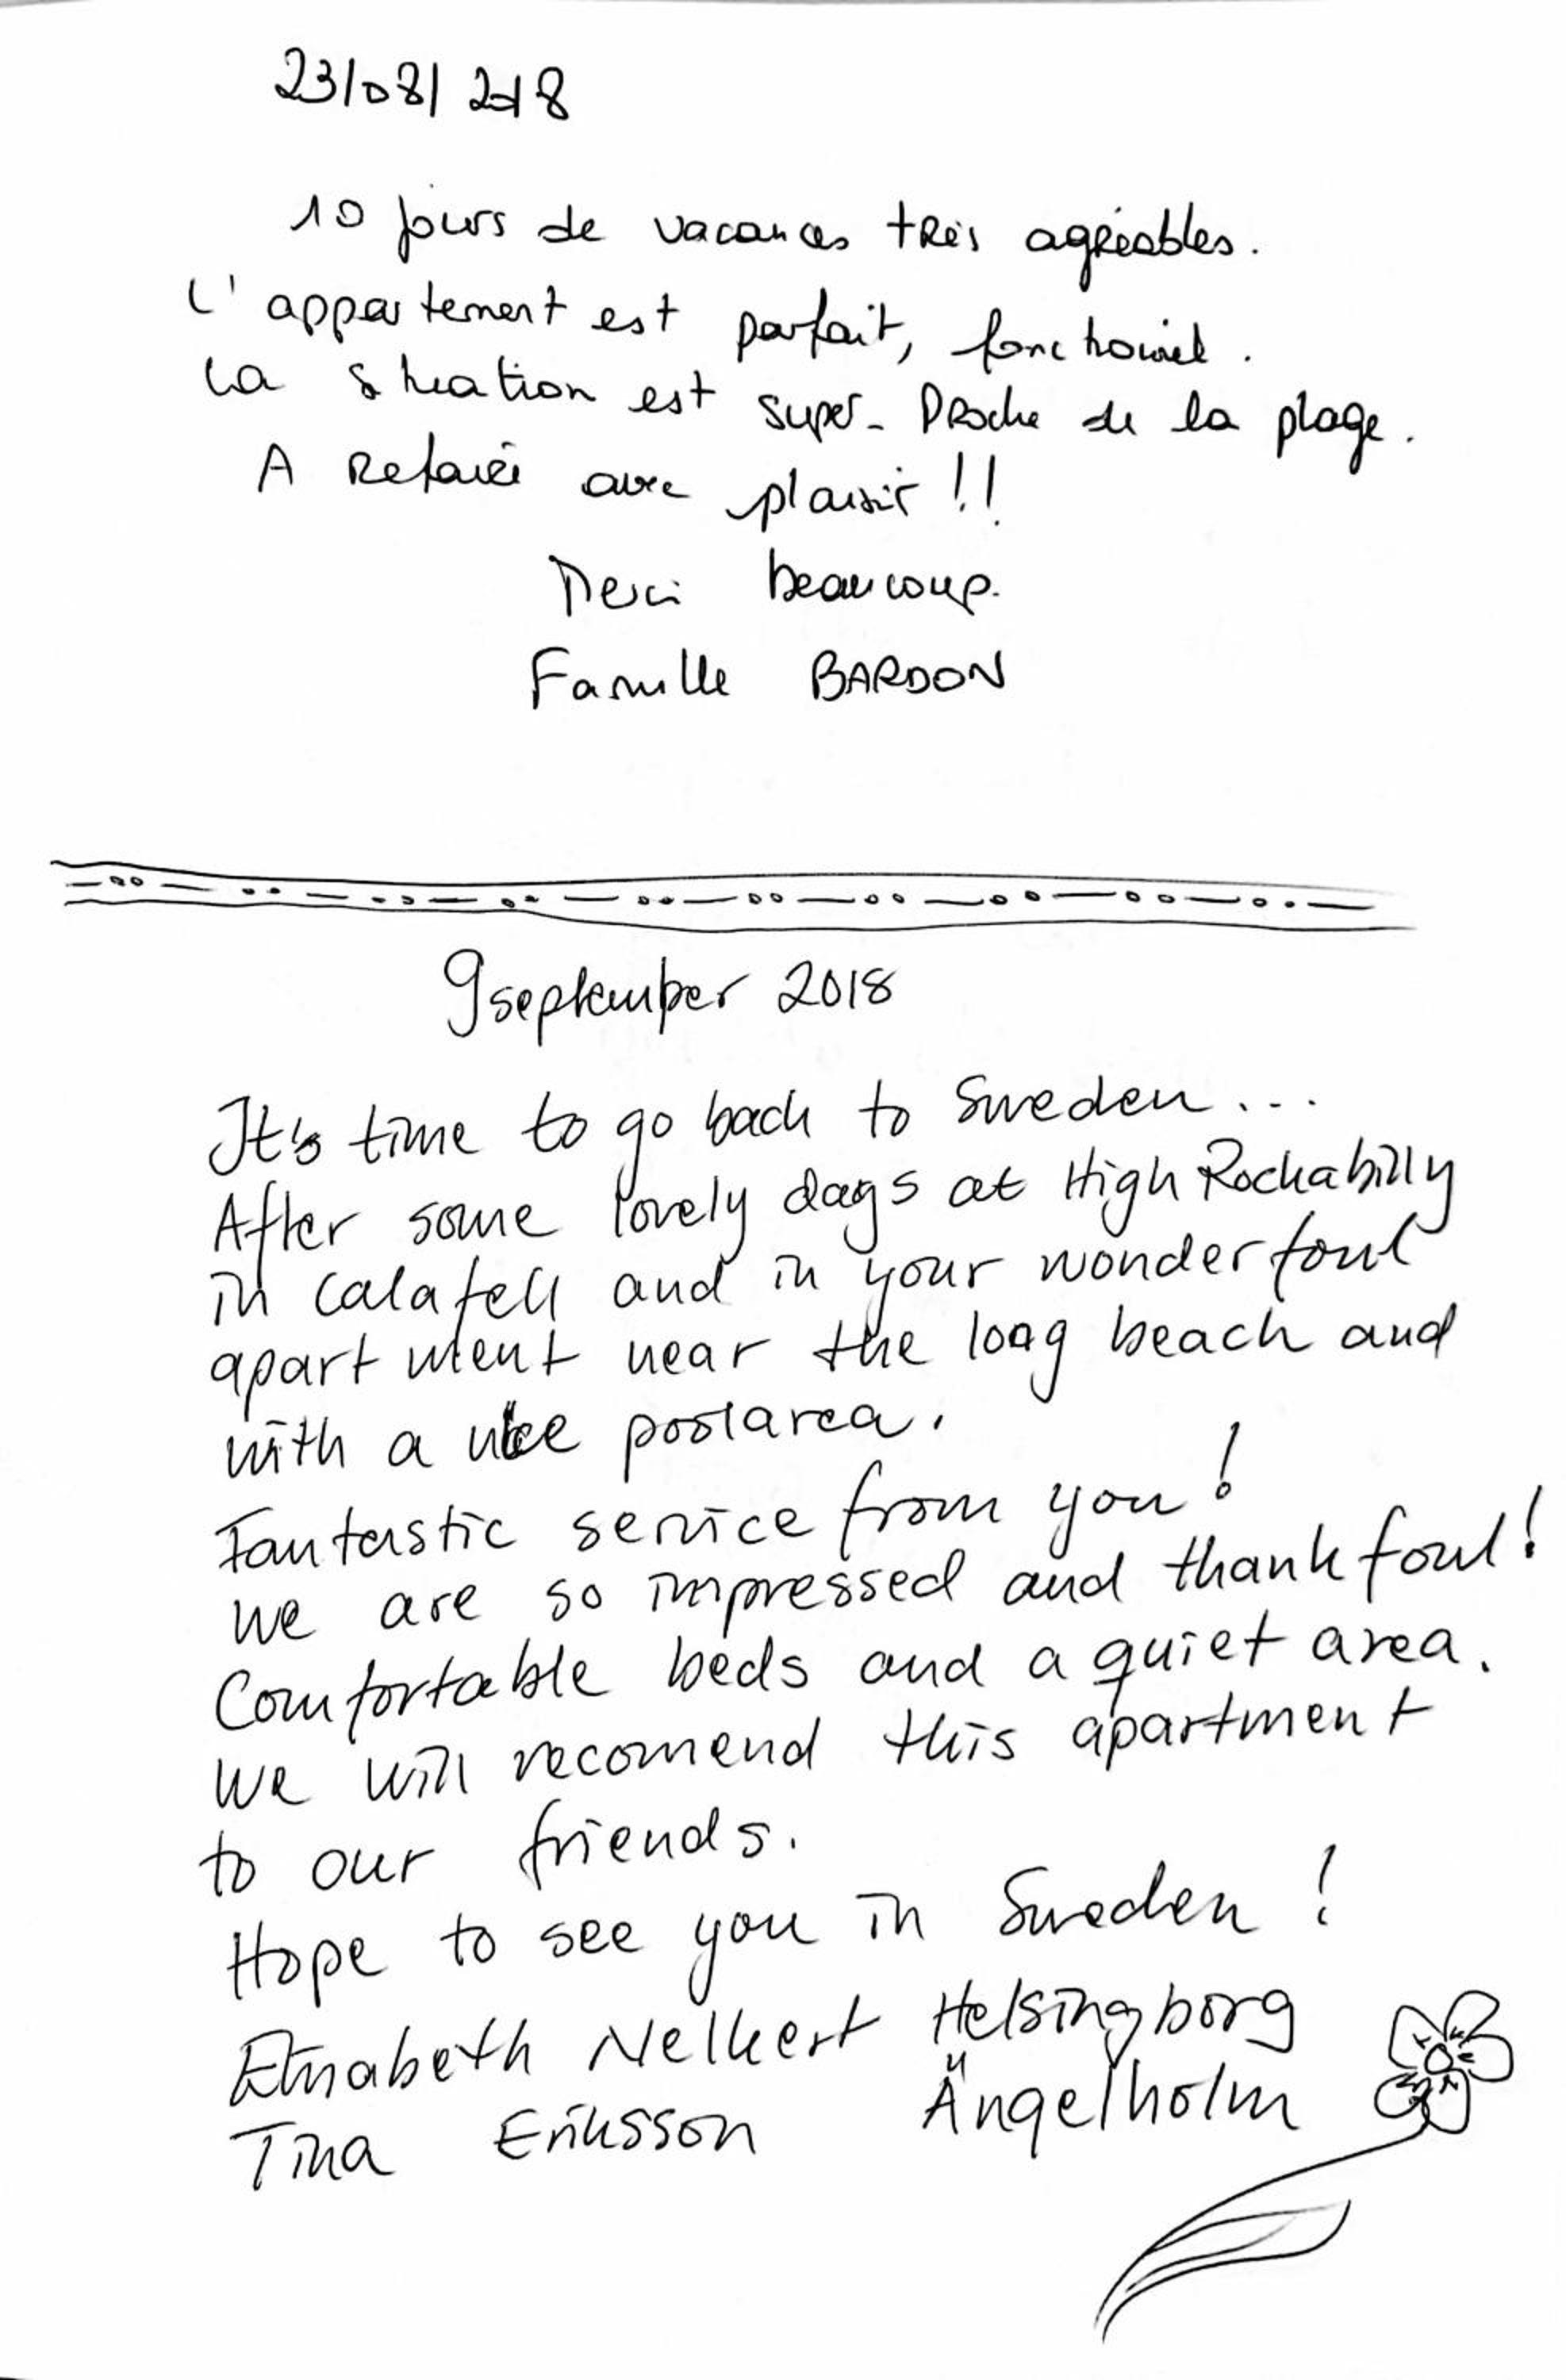 23/08/2018
10 jours de vacances très agréables.
L'appartement est parfait, fonctionnel.
La situation est super. Proche de la plage.
A Refaire avec plaisir !!
Merci beaucoup.
Famille BARDON
9 september 2018
It's time to go back to Sweden...
After some lovely days at High Rockabilly
in Calafell and in your wonderfoul
apartment near the long beach and
with a nice poolarea.
Fantastic service from you!
We are so impressed and thankfoul!
Comfortable beds and a quiet area.
We will recomend this apartment
to our friends.
Hope to see you in Sweden!
Nelkert Helsingborg
Tina Eriksson Ängelholm